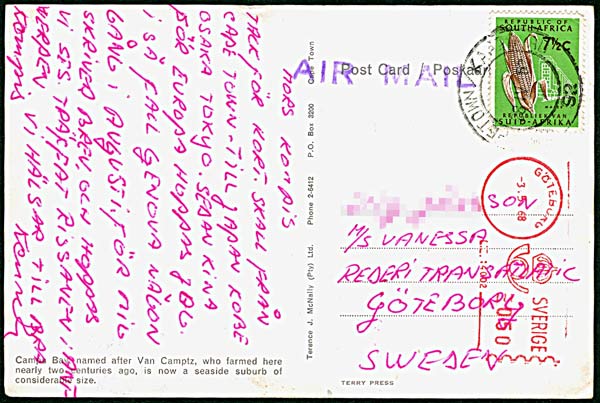 MORS KOMPIS
TACK FÖR KORT. SKALL FRÅN
CAPE TOWN TILL JAPAN KOBE
OSAKA TOKYO. SEDAN KINA
FÖR EUROPA HOPPAS JAG.
I SÅ FALL GENOVA NÅGON
GÅNG I AUGUSTI FÖR MIG
SKRIVER BREV OCH HOPPAS
VI SES.
VI HÄLSAR TILL
Camps Bay named after Van Camptz, who farmed here
nearly two centuries ago, is now a seaside suburb of
considerable size.
Terence J. McNally (Pty) Ltd. Phone 2-6412 P.O. Box 3200 Cape Town
Post Card Poskaart
AIR MAIL
REPUBLIC OF
SOUTH AFRICA
7½C
REPUBLIEK VAN
SUID-AFRIKA
GÖTEBORG
-3.5.68
SVERIGE
050
SON
M/S VANESSA
REDERI TRANSATLANTIC
GÖTEBORG
SWEDEN
TERRY PRESS